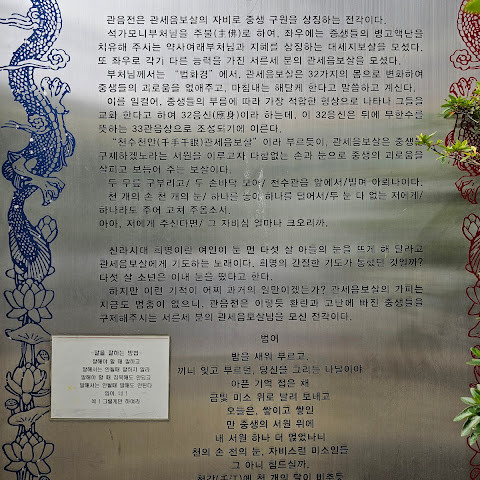 관음전은 관세음보살의 자비로 중생 구원을 상징하는 전각이다.
석가모니부처님을 주불(主佛)로 하여, 좌우에는 중생들의 병고액난을
치유해 주시는 약사여래부처님과 지혜를 상징하는 대세지보살을 모셨다.
또 좌우로 각기 다른 능력을 가진 서른세 분의 관세음보살을 모셨다.
부처님께서는 "법화경"에서, 관세음보살은 32가지의 몸으로 변화하여
중생들의 괴로움을 없애주고, 마침내는 해탈케 한다고 말씀하고 계신다.
이를 일컬어, 중생들의 부름에 따라 가장 적합한 형상으로 나타나 그들을
교화 한다고 하여 32응신(應身)이라 하는데, 이 32응신은 뒤에 무한수를
뜻하는 33관음상으로 조성되기에 이른다.
"천수천안(千手千眼)관세음보살" 이라 부르듯이, 관세음보살은 중생을
구제하겠노라는 서원을 이루고자 다함없는 손과 눈으로 중생의 괴로움을
살피고 보듬어 주는 보살이다.
두 무릎 구부리고/ 두 손바닥 모아/ 천수관음 앞에서/빌며 아뢰나이다.
천 개의 손 천 개의 눈/ 하나를 놓아 하나를 덜어서/두 눈 다 없는 저에게/
하나라도 주어 고쳐 주옵소서.
아아, 저에게 주신다면/ 그 자비심 얼마나 크오리까.
신라시대 희명이란 여인이 눈 먼 다섯 살 아들의 눈을 뜨게 해 달라고
관세음보살에게 기도하는 노래이다. 희명의 간절한 기도가 통했던 것일까?
다섯 살 소년은 이내 눈을 떴다고 한다.
하지만 이런 기적이 어찌 과거의 일만이겠는가? 관세음보살의 가피는
지금도 멈춤이 없으니, 관음전은 이렇듯 환란과 고난에 빠진 중생들을
구제해주시는 서른세 분의 관세음보살님을 모신 전각이다.
범어
밤을 새워 부르고,
끼니 잊고 부르던, 당신을 그리는 나달이야
아픈 기억 접은 채
금빛 미소 위로 날려 보내고
오늘은, 쌓이고 쌓인
만 중생의 서원 위에
내 서원 하나 더 얹었나니
천의 손 천의 눈, 자비스런 미소인들
그 아니 힘드실까.
천강(千江)에 천 개의 달이 비추듯
-말을 잘하는 방법
말해야 할 때 말하고
말해서는 안될때 말하지 말라
말해야 할 때 침묵해도 안되고
말해서는 안될때 말해도 안된다
입아, 너!
예! 그렇게만 하여라